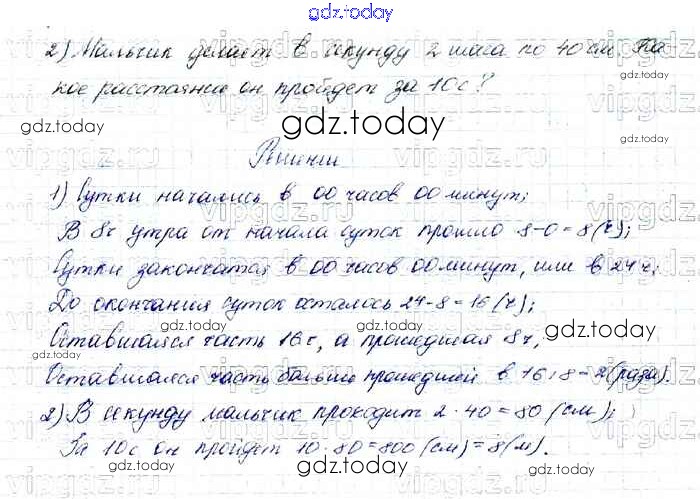 gdz.today
2) Мальчик делает в секунду 2 шага по 40 см. Ка-
кое расстояние он пройдет за 10 с?
gdz.today
gdz.today
gdz.today
Решение
1) Сутки начались в 00 часов 00 минут;
В 8ч утра от начала суток прошло 8-0=8(ч);
Сутки закончатся в 00 часов 00 минут, или в 24 ч;
До окончания суток осталось 24-8=16(ч);
gdz.today
gdz.today
gdz.today
Оставшаяся часть 16ч, а прошедшая 8ч,
Оставшаяся часть больше прошедшей в 16:8=2(раза).
2) В секунду мальчик проходит 2·40=80 (см);
За 10с он пройдет 10·80=800 (см)=8(м).
gdz.today
gdz.today
gdz.today